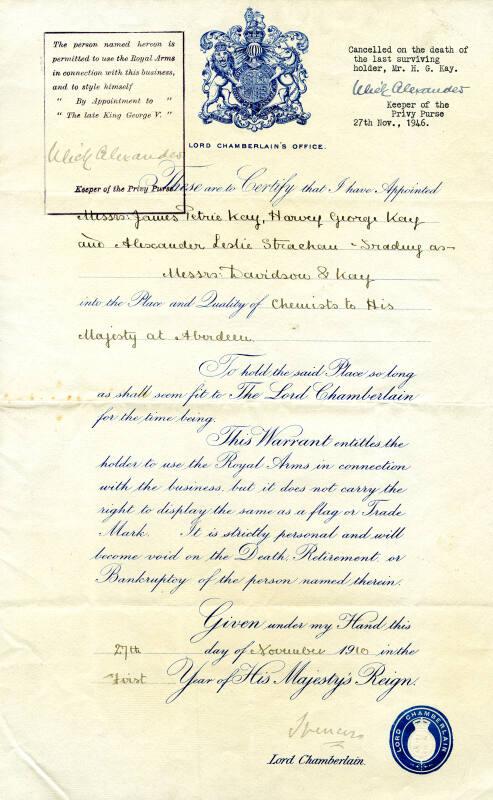 The person named hereon is
permitted to use the Royal Arms
in connection with this business,
and to style himself
" By Appointment to "
" The late King George V. "
Ulick Alexander
Keeper of the Privy Purse.
Cancelled on the death of
the last surviving
holder, Mr. H. G. Kay.
Ulick Alexander
Keeper of the
Privy Purse
27th Nov., 1946.
LORD CHAMBERLAIN'S OFFICE.
These are to Certify that I have Appointed
Messrs: James Petrie Kay, Harvey George Kay
and Alexander Leslie Strachan - Trading as-
Messrs: Davidson & Kay
into the Place and Quality of Chemists to His
Majesty at Aberdeen.
To hold the said Place so long
as shall seem fit to The Lord Chamberlain
for the time being.
This Warrant entitles the
holder to use the Royal Arms in connection
with the business, but it does not carry the
right to display the same as a flag or Trade
Mark. It is strictly personal and will
become void on the Death, Retirement, or
Bankruptcy of the person named therein.
Given under my Hand this
27th day of November 1910 in the
First Year of His Majesty's Reign.
Spencer
Lord Chamberlain.
LORD CHAMBERLAIN